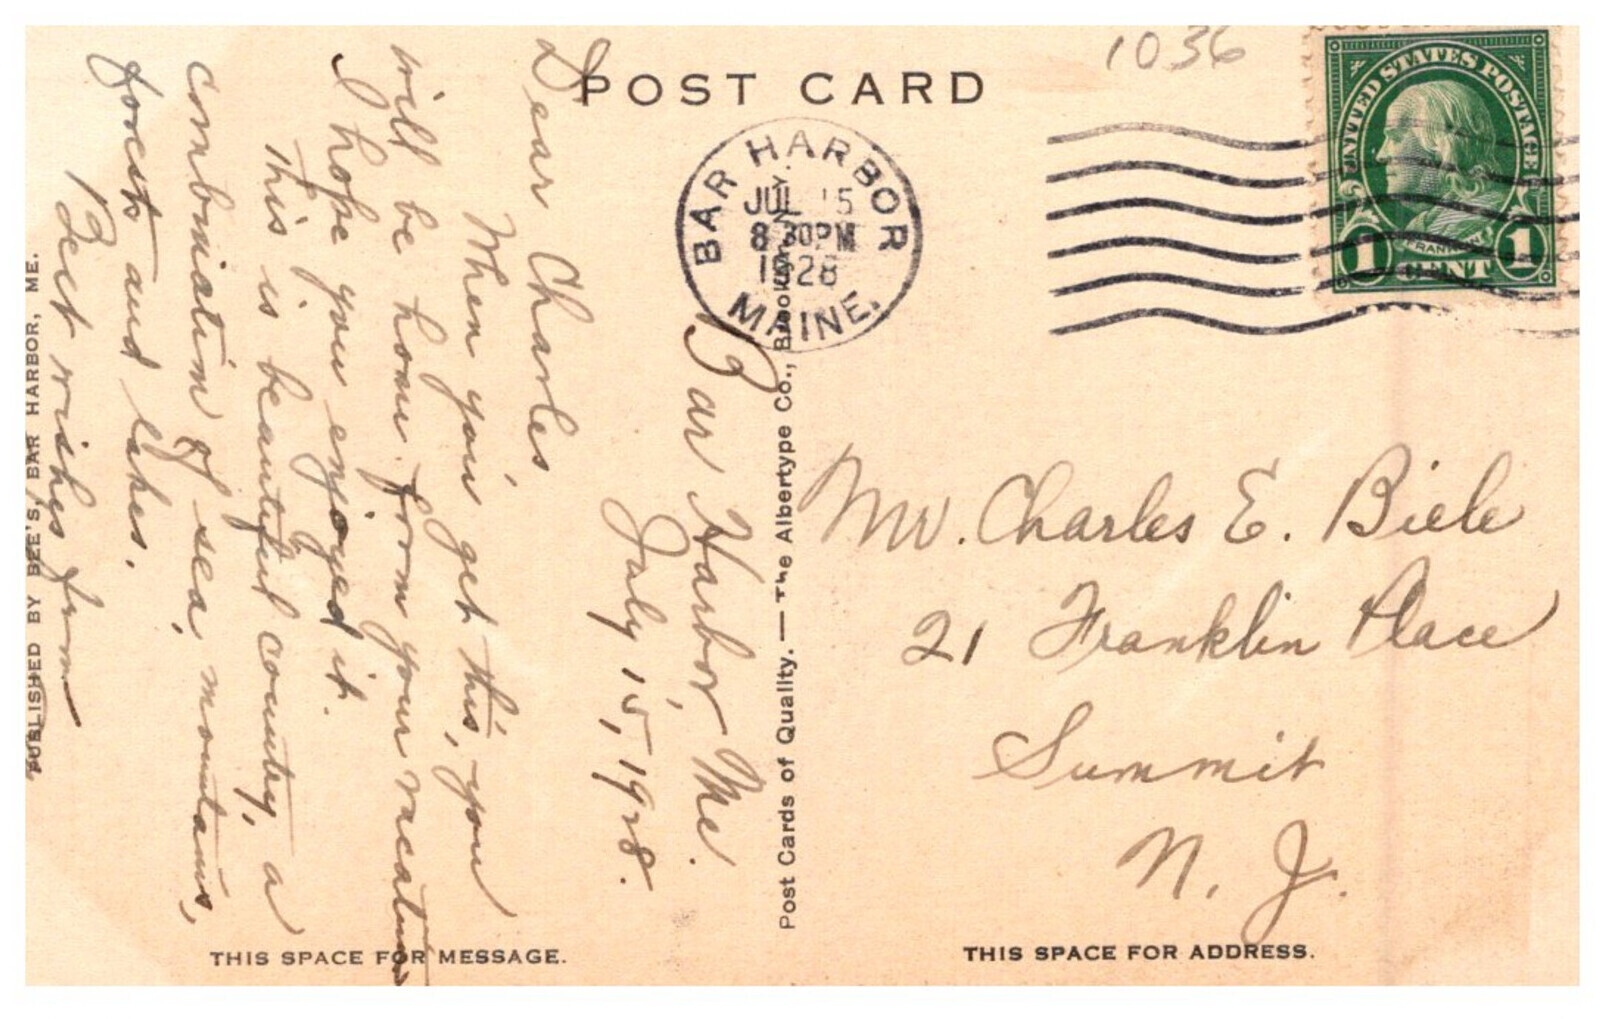 1036
POST CARD
UNITED STATES POSTAGE
FRANKLIN
1 CENT 1
BAR HARBOR
JUL 15
8 30PM
1928
MAINE.
Bar Harbor, Me.
July 15, 1928.
Dear Charles,
When you get this, you
will be home from your vacation
I hope you enjoyed it.
This is beautiful country, a
combination of sea, mountains,
forests and lakes.
Best wishes from
Mr. Charles E. Biele
21 Franklin Place
Summit
N. J.
Post Cards of Quality. — The Albertype Co., Brooklyn, N.Y.
PUBLISHED BY BEE'S, BAR HARBOR, ME.
THIS SPACE FOR MESSAGE.
THIS SPACE FOR ADDRESS.